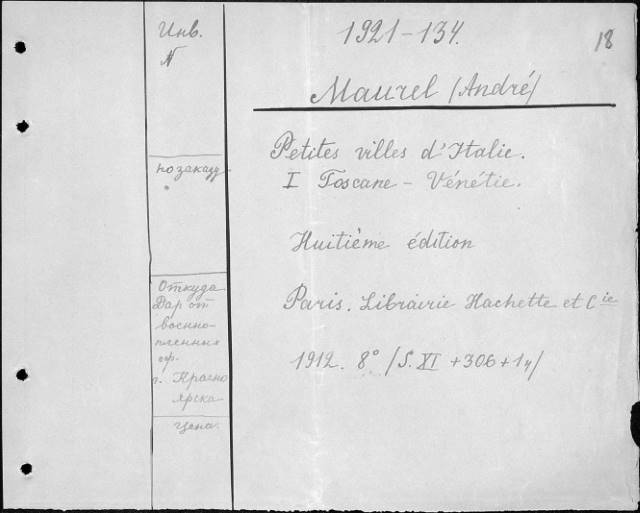 Инв.
N
1921-134.
18
Maurel (André)
по заказу
Petites villes d'Italie.
I Toscane - Vénétie.
Huitième édition
Откуда
Дар от
военно-
пленных
оф.
г. Красно
ярска
Paris. Librairie Hachette et Cie
1912. 8° (S. XI + 306 + 1
цена